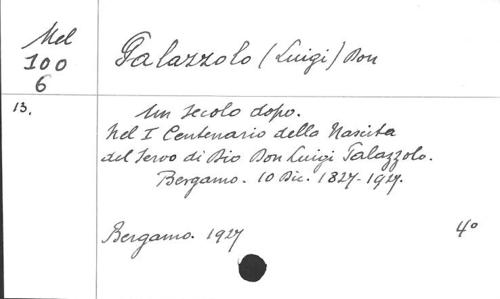 Mel
100
6
Palazzolo (Luigi) Don
13.
Un secolo dopo.
Nel I Centenario della Nascita
del Servo di Dio Don Luigi Palazzolo.
Bergamo. 10 Dic. 1827-1927.
Bergamo. 1927
4º